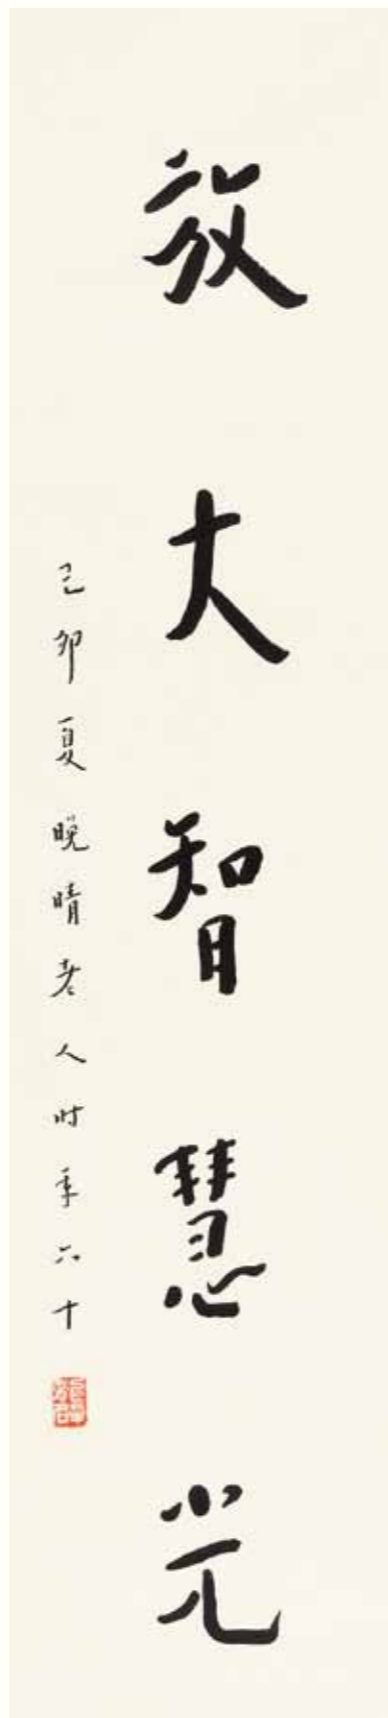 放大智慧光
己卯夏晚晴老人时年六十